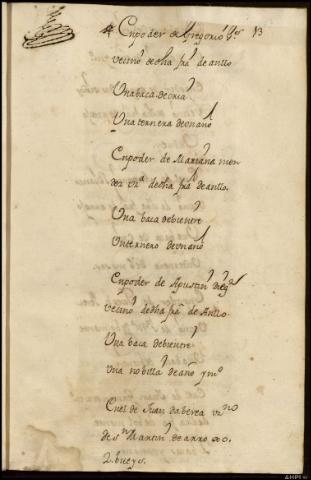 Enpoder de Gregorio 13
vecino de dha frª de antlo
Una baca de cria
Una ternera de un año
Enpoder de Mariana men
dez vzª de dha frª de antlo.
Una baca de bientre
Un ternero de un año
Enpoder de Agustin
vecino de dha frª de Antlo
Una baca de bientre
Una nobilla de año y mº
En el de Juan da berea vzno
de sn Martin de arrojo.
2. bueys.
AHPL